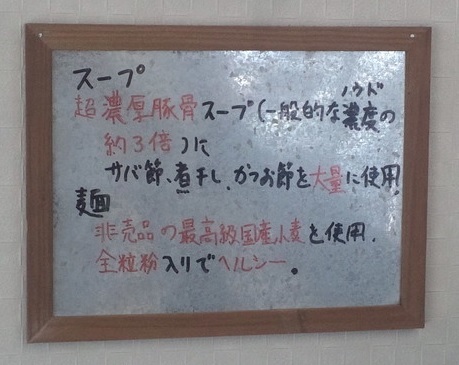 スープ
超濃厚豚骨スープ(一般的な濃度の
ノウド
約3倍)に
サバ節、煮干し、かつお節を大量に使用
麺
非売品の最高級国産小麦を使用.
全粒粉入りでヘルシー。